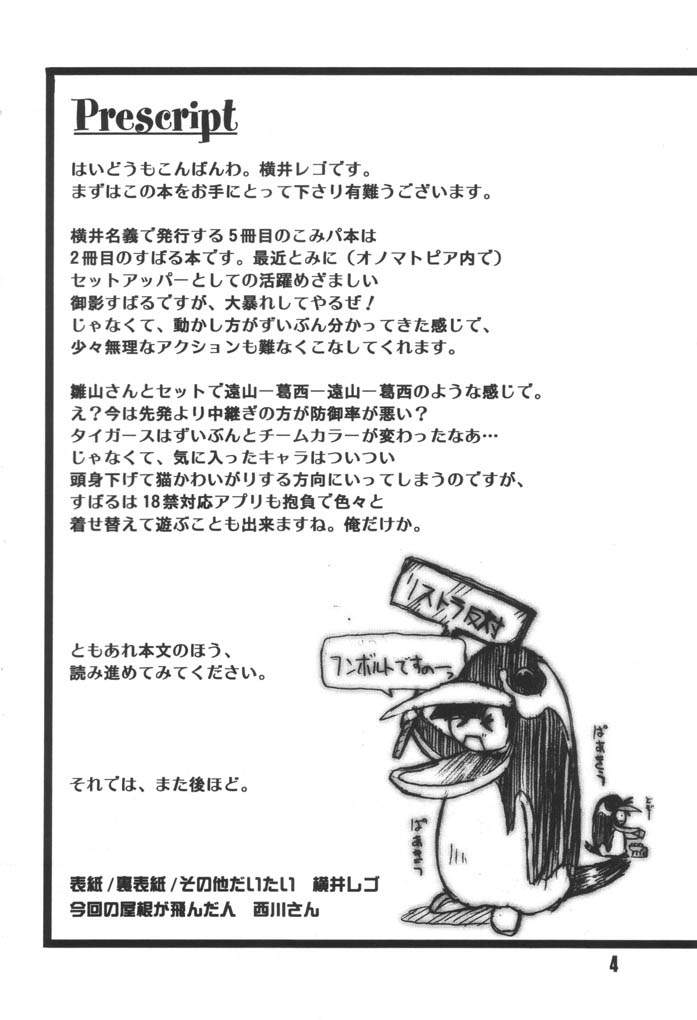 Prescript
はいどうもこんばんわ。横井レゴです。
まずはこの本をお手にとって下さり有難うございます。
横井名義で発行する5冊目のこみパ本は
2冊目のすばる本です。最近とみに（オノマトピア内で）
セットアッパーとしての活躍めざましい
御影すばるですが、大暴れしてやるぜ！
じゃなくて、動かし方がずいぶん分かってきた感じで、
少々無理なアクションも難なくこなしてくれます。
雛山さんとセットで遠山－葛西－遠山－葛西のような感じで。
え？今は先発より中継ぎの方が防御率が悪い？
タイガースはずいぶんとチームカラーが変わったなあ…
じゃなくて、気に入ったキャラはついつい
頭身下げて猫かわいがりする方向にいってしまうのですが、
すばるは18禁対応アプリも抱負で色々と
着せ替えて遊ぶことも出来ますね。俺だけか。
リストラ反対
フンボルトですのーっ
ともあれ本文のほう、
読み進めてみてください。
ぱぁぎぅ
ばぁぎぅ
それでは、また後ほど。
表紙/裏表紙/その他だいたい　横井レゴ
今回の屋根が飛んだ人　西川さん
4